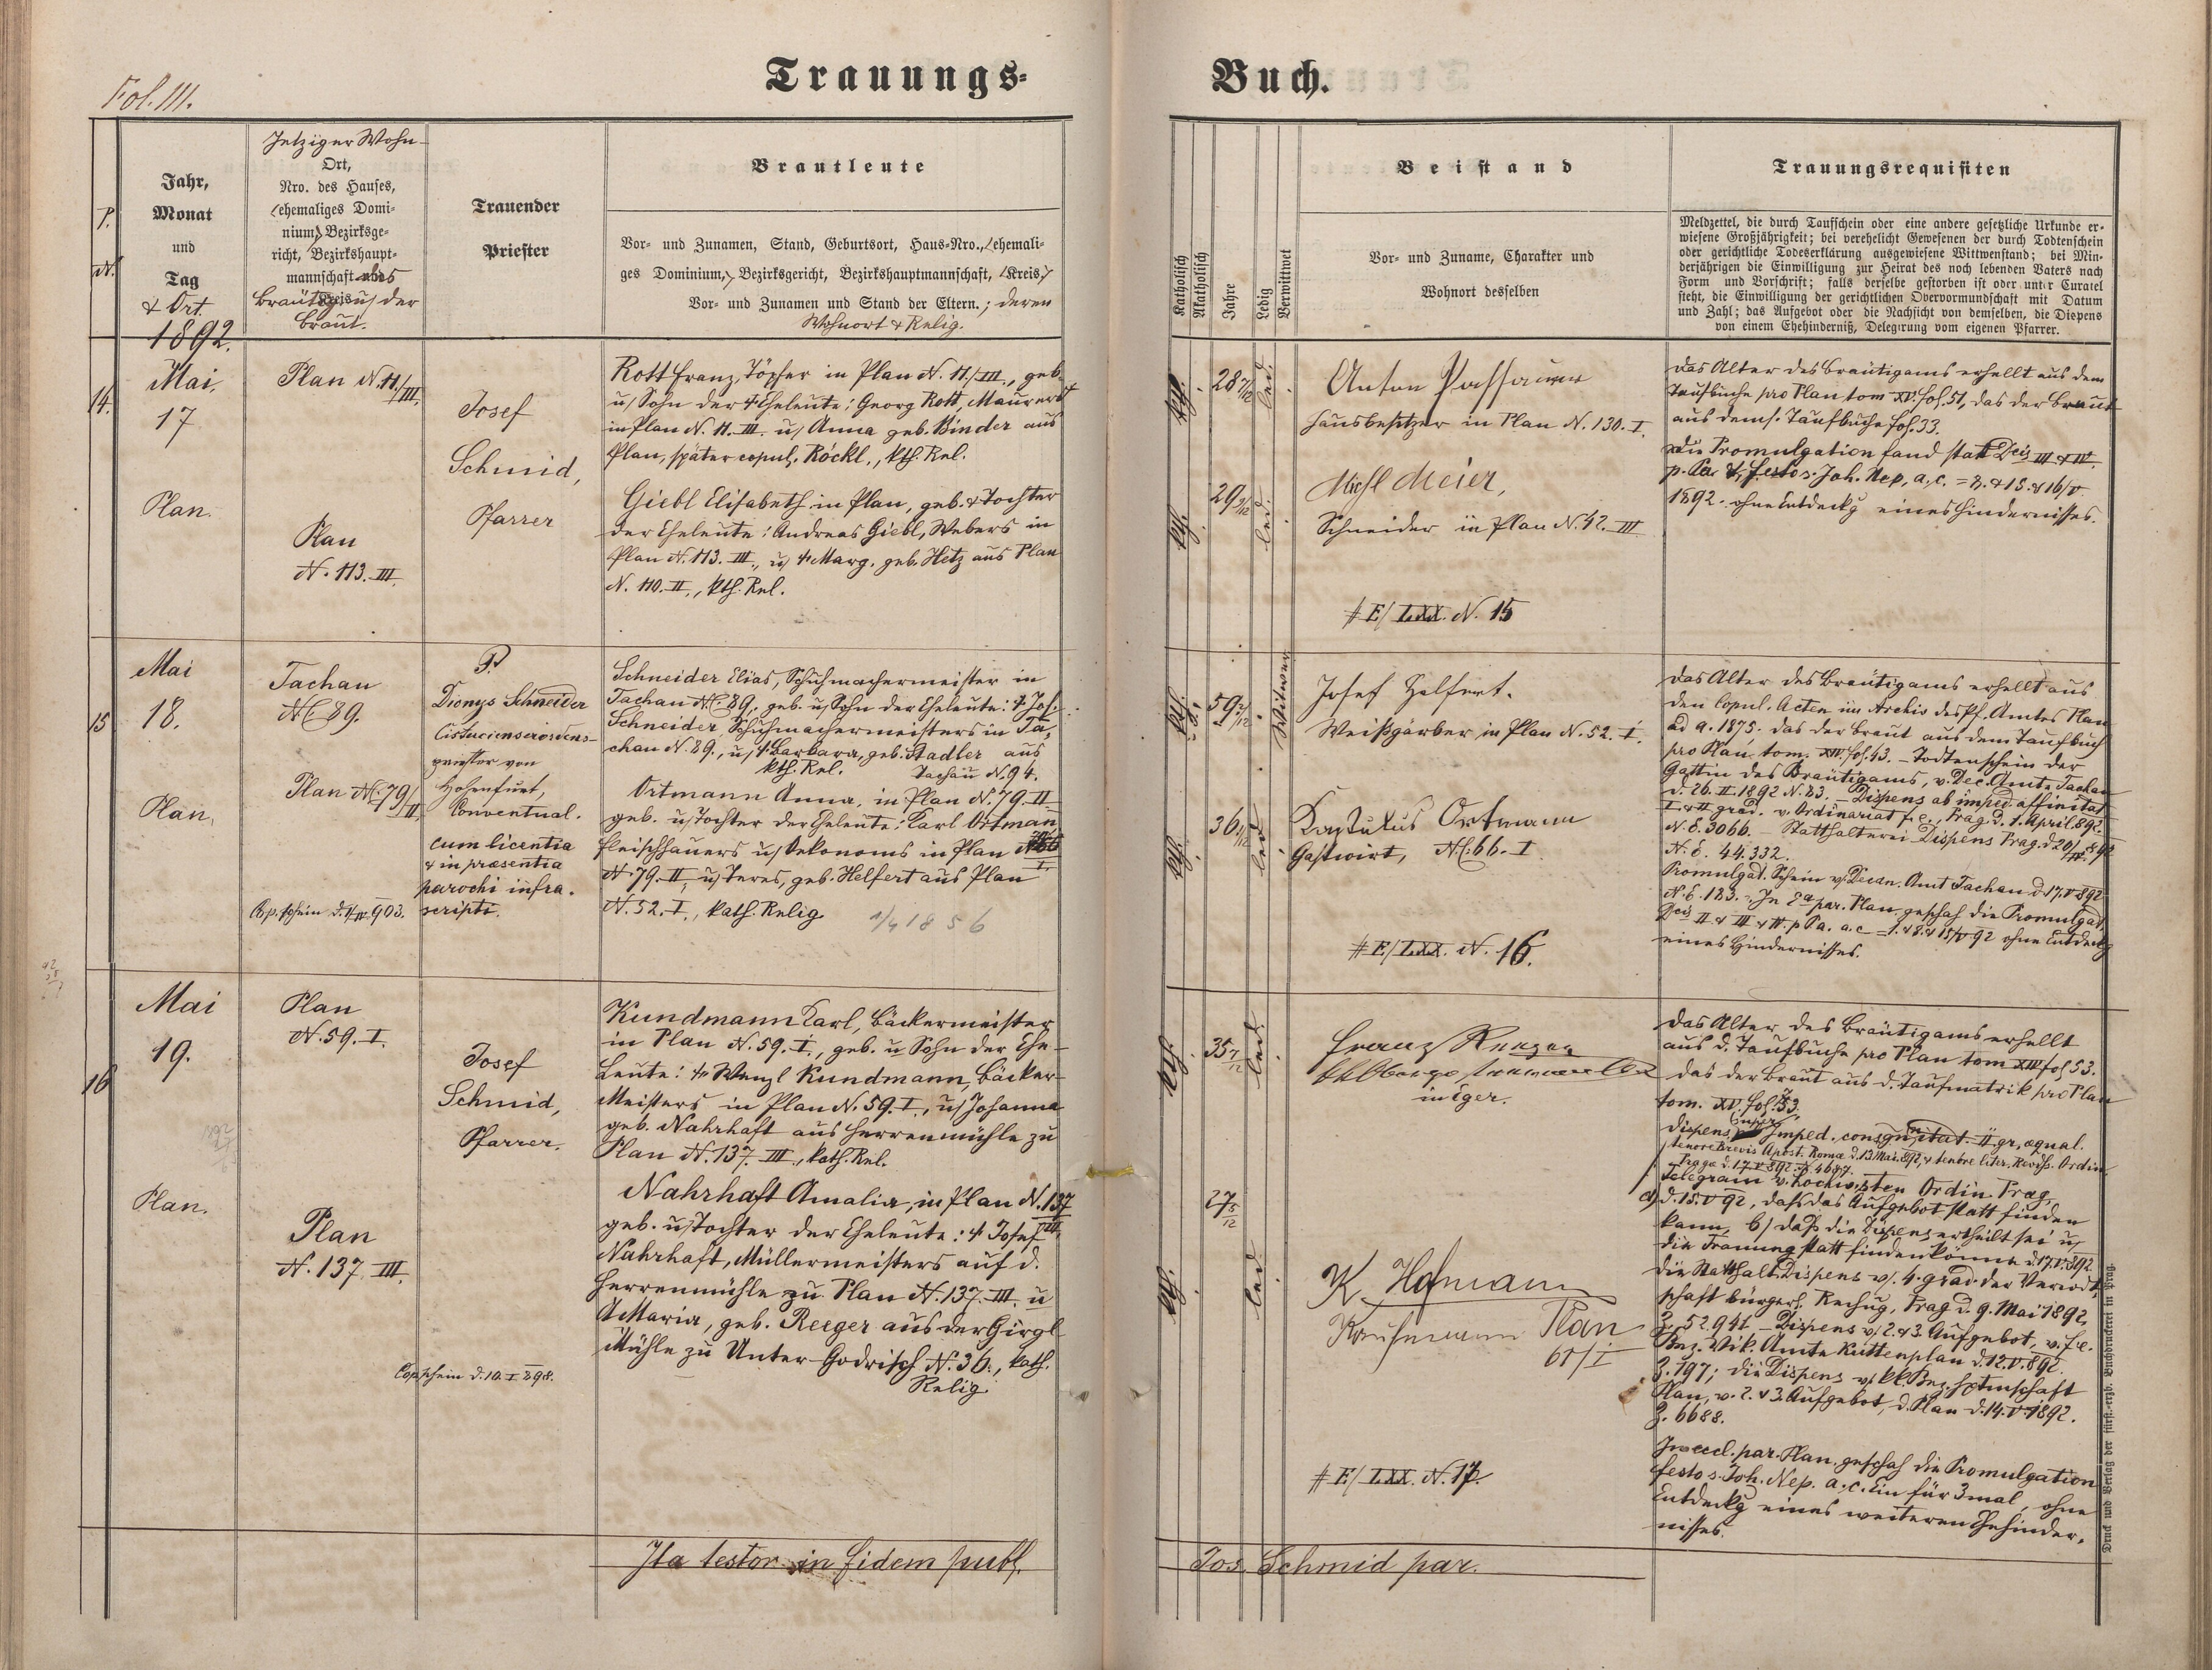 Fol. III.
Trauungs-
P.
N.
Jahr,
Monat
und
Tag
& Ort.
1892.
Jetziger Wohn-
Ort,
Nro. des Hauses,
(ehemaliges Domi-
nium) Bezirksge-
richt, Bezirkshaupt-
mannschaft des
Bräutigs u/ der
Braut.
Trauender
Priester
Brautleute
Vor- und Zunamen, Stand, Geburtsort, Haus-Nro., (ehemali-
ges Dominium,) Bezirksgericht, Bezirkshauptmannschaft, (Kreis,)
Vor- und Zunamen und Stand der Eltern.; deren
Wohnort & Relig.
14.
Mai
17
Plan.
Plan N. 11/III.
Plan
N. 113. III.
Josef
Schmid,
Pfarrer
Rott Franz, Töpfer in Plan N. 11./III., geb.
u/ Sohn der † Eheleute: Georg Rott, Maurers
in Plan N. 11. III. u/ Anna geb. Binder aus
Plan, später copul. Röckl., kth. Rel.
Giebl Elisabeth in Plan, geb. & Tochter
der Eheleute: Andreas Giebl, Webers in
Plan N. 113. III., u/ † Marg. geb. Hetz aus Plan
N. 110. II., kth. Rel.
15
Mai
18.
Plan.
Tachau
NC 89.
Plan NC 79/II
Cop. schein d. 1/IV. 903.
P.
Dionys Schneider
Cistucienserordens-
priester von
Hohenfurt,
Conventual.
cum licentia
& in præsentia
parochi infra.
scripti.
Schneider Elias, Schuhmachermeister in
Tachau NC. 89, geb. u/ Sohn der Eheleute: † Jos.
Schneider, Schuhmachermeisters in Ta-
chau N. 89., u/ † Barbara, geb. Stadler aus
kth. Rel. Tachau N. 94.
Ortmann Anna, in Plan N. 79. II
geb. u/ Tochter der Eheleute: Karl Ortman
Fleischhauers u/ Oekonoms in Plan
N. 79. II, u/ Teres, geb. Helfert aus Plan
N. 52. I., kath. Relig.
1/4 1856
16
Mai
19.
Plan.
Plan
N. 59. I.
Plan
N. 137 III.
Josef
Schmid,
Pfarrer.
Cop schein d. 10. I 898.
Kundmann Carl, Bäckermeister
in Plan N. 59. I., geb. u Sohn der Ehe-
Leute: † Wenzl Kundmann, Bäcker-
Meisters in Plan N. 59. I., u/ Johanna
geb. Nahrhaft aus Herrenmühle zu
Plan N. 137. III, kath. Rel.
Nahrhaft Amalia, in Plan N. 137
III.
geb. u/ Tochter der Eheleute: † Josef
Nahrhaft, Müllermeisters auf d.
Herrenmühle zu Plan N. 137. III. u
† Maria, geb. Reeger aus der Girgl
Mühle zu Unter-Godrisch N. 36., kath.
Relig.
Ita testor in fidem publ.
Buch.
Katholisch
Akatholisch
Jahre
Ledig
Verwittwet
Beistand
Vor- und Zuname, Charakter und
Wohnort desselben
Trauungsrequisiten
Meldzettel, die durch Taufschein oder eine andere gesetzliche Urkunde er-
wiesene Großjährigkeit; bei verehelicht Gewesenen der durch Todtenschein
oder gerichtliche Todeserklärung ausgewiesene Wittwenstand; bei Min-
derjährigen die Einwilligung zur Heirat des noch lebenden Vaters nach
Form und Vorschrift; falls derselbe gestorben ist oder unter Curatel
steht, die Einwilligung der gerichtlichen Obervormundschaft mit Datum
und Zahl; das Aufgebot oder die Nachsicht von demselben, die Dispens
von einem Ehehinderniß, Delegirung vom eigenen Pfarrer.
kth.
28 7/12
led.
kth.
29 9/12
led.
Anton Passauer
Hausbesitzer in Plan N. 130. I.
Michl Meier,
Schneider in Plan N. 42. III
# E/ LXX. N. 15
Das Alter des Bräutigams erhellt aus dem
Taufbuche pro Plan tom XV. fol. 51, das der Braut
aus dems. Taufbuche fol. 33.
Die Promulgation fand statt Dcis III & IV.
p. Pa & festo s. Joh. Nep, a. c. = 8. & 15. & 16/V
1892. ohne Entdeckg eines Hindernisses.
kth.
59 2/12
Witwer
kth.
36 1/12
led
Josef Helfert.
Weißgärber in Plan N. 52. I.
Kastulus Ortmann
Gastwirt, NC: 66. I
# E/ LXX. N. 16.
Das Alter des Bräutigams erhellt aus
den Copul. Acten im Archiv des Pf. Amtes Plan
ad a. 1875. das der Braut aus dem Taufbuch
pro Plan tom. XIV. fol. 43. – Todtenschein der
Gattin des Bräutigams, v. Dec. Amte Tachau
d. 26. II. 1892 N. 83. – Dispens ab imped. affinitat
I. & II grad. v. Ordinariat f. e., Prag d. 1. April 892.
N. E. 3066. – Statthalterei Dispens Prag. d 20/IV. 892
N. E. 44.332.
Promulgat. Schein v/ Decan. Amt Tachau d. 17. V 892
N. E. 183. – In Ea par. Plan geschah die Promulgat.
Dcis II & III & IV. p Pa. a. c = 1. & 8. & 15/V 92 ohne Entdeckg
eines Hindernisses.
kth.
35 7/12
led.
27 5/12
kth
led
Franz
in Eger.
K. Hofmann
Kaufmann Plan
61/I
# E/ LXX. N. 17.
Das Alter des Bräutigams erhellt
aus d. Taufbuche pro Plan tom XIV fol 53.
das der Braut aus d. Taufmatrik pro Plan
tom. XV. fol. 53.
Dispens super Imped. consgnitat. II gr. æqual.
tenore Brevis Apost. Romæ d. 13. Mai 892, & tenore liter. Revss. Ordin
Pragæ d. 17. V 892 N. 4647.
Telegram v. Hochwsten Ordin. Prag,
a) d. 15. V 92, daß das Aufgebot statt finden
kann, b/ daß die Dispens ertheilt sei u/
die Trauung statt finden könne d. 17. V. 892
die Statthalt. Dispens v/. 4. grad. der Verwdt-
schaft bürgerl. Rechug, Prag d. 9. Mai 1892,
Z. 52.941 – Dispens v/ 2. & 3. Aufgebot, v. f. e.
Bez. Vik. Amte Kuttenplan d. 12. V. 892.
Z. 197; die Dispens v/ kk. Bez. Hptmschaft
Plan, v. 2. & 3. Aufgebot, d. Plan d. 14. V 1892.
Z. 6688.
In eccl. par. Plan geschah die Promulgation
festo s. Joh. Nep. a. c. Ein für 3mal, ohne
Entdeckg eines weiteren Ehehinder-
nisses.
Jos. Schmid par.
Druck und Verlag der fürst.-erzb. Buchdruckerei in Prag.